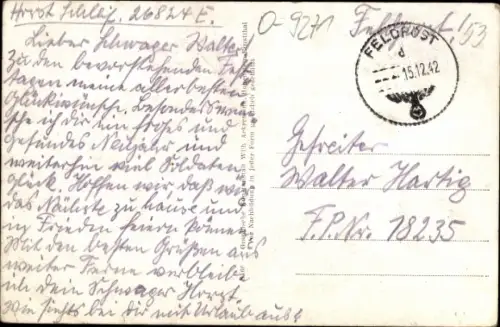 Horst Schley. 26824 E.
O-9271
Feldpost! 53
FELDPOST
d
15.12.42
Lieber Schwager Walter
Zu den bevorstehenden Fest
tagen meine allerbesten
Glückwünsche. Besonders wün
sche ich dir ein frohes und
gesundes Neujahr und
weiterhin viel Soldaten
glück. Hoffen wir daß wir
das Nächste zu hause und
in Frieden feiern können.
Mit den besten Grüßen aus
weiter Ferne verbleibe
ich dein Schwager Horst.
Wie siehts bei dir mit Urlaub aus?
Gefreiter
Walter Hartig
F.P.Nr. 18235